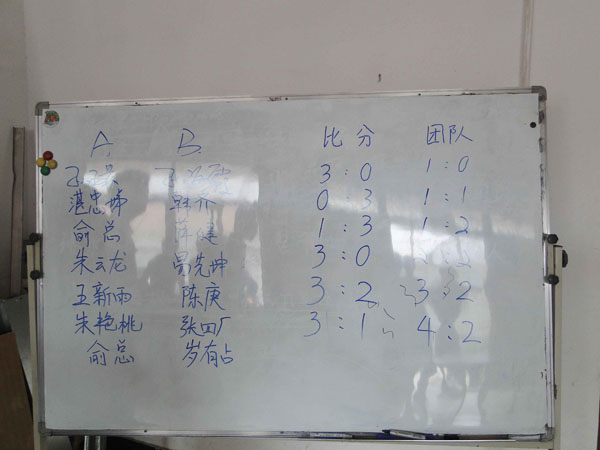 A. B. 比分 团队
3:0 1:0
湛忠坤 韩介 0:3 1:1
俞总 1:3 1:2
朱云龙 易先坤 3:0
王新雨 陈庚 3:2 3:2
朱艳桃 张四厂 3:1 4:2
俞总 岁有占